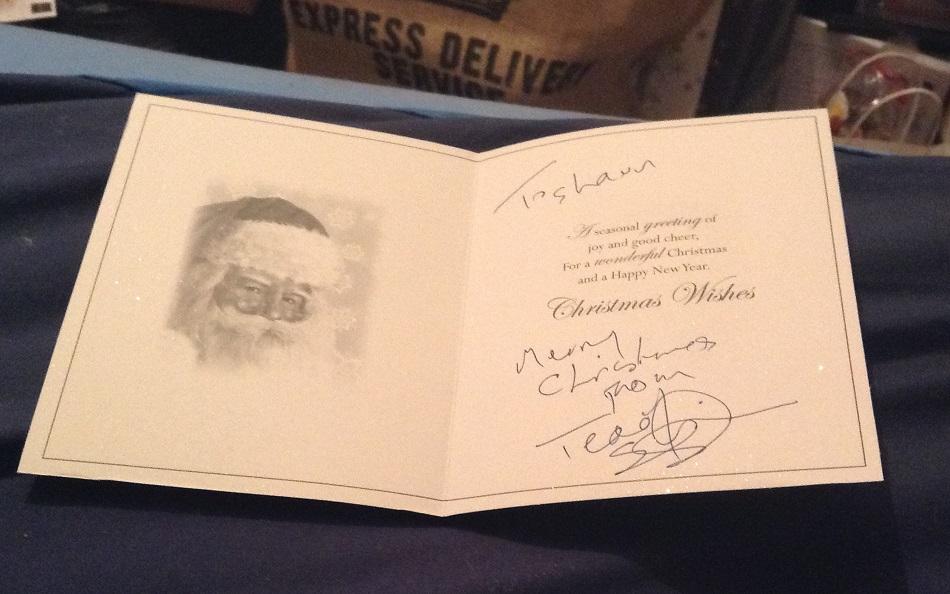 EXPRESS DELIVERY
SERVICE
To Shaun
A seasonal greeting of
joy and good cheer,
For a wonderful Christmas
and a Happy New Year.
Christmas Wishes
Merry
Christmas
from